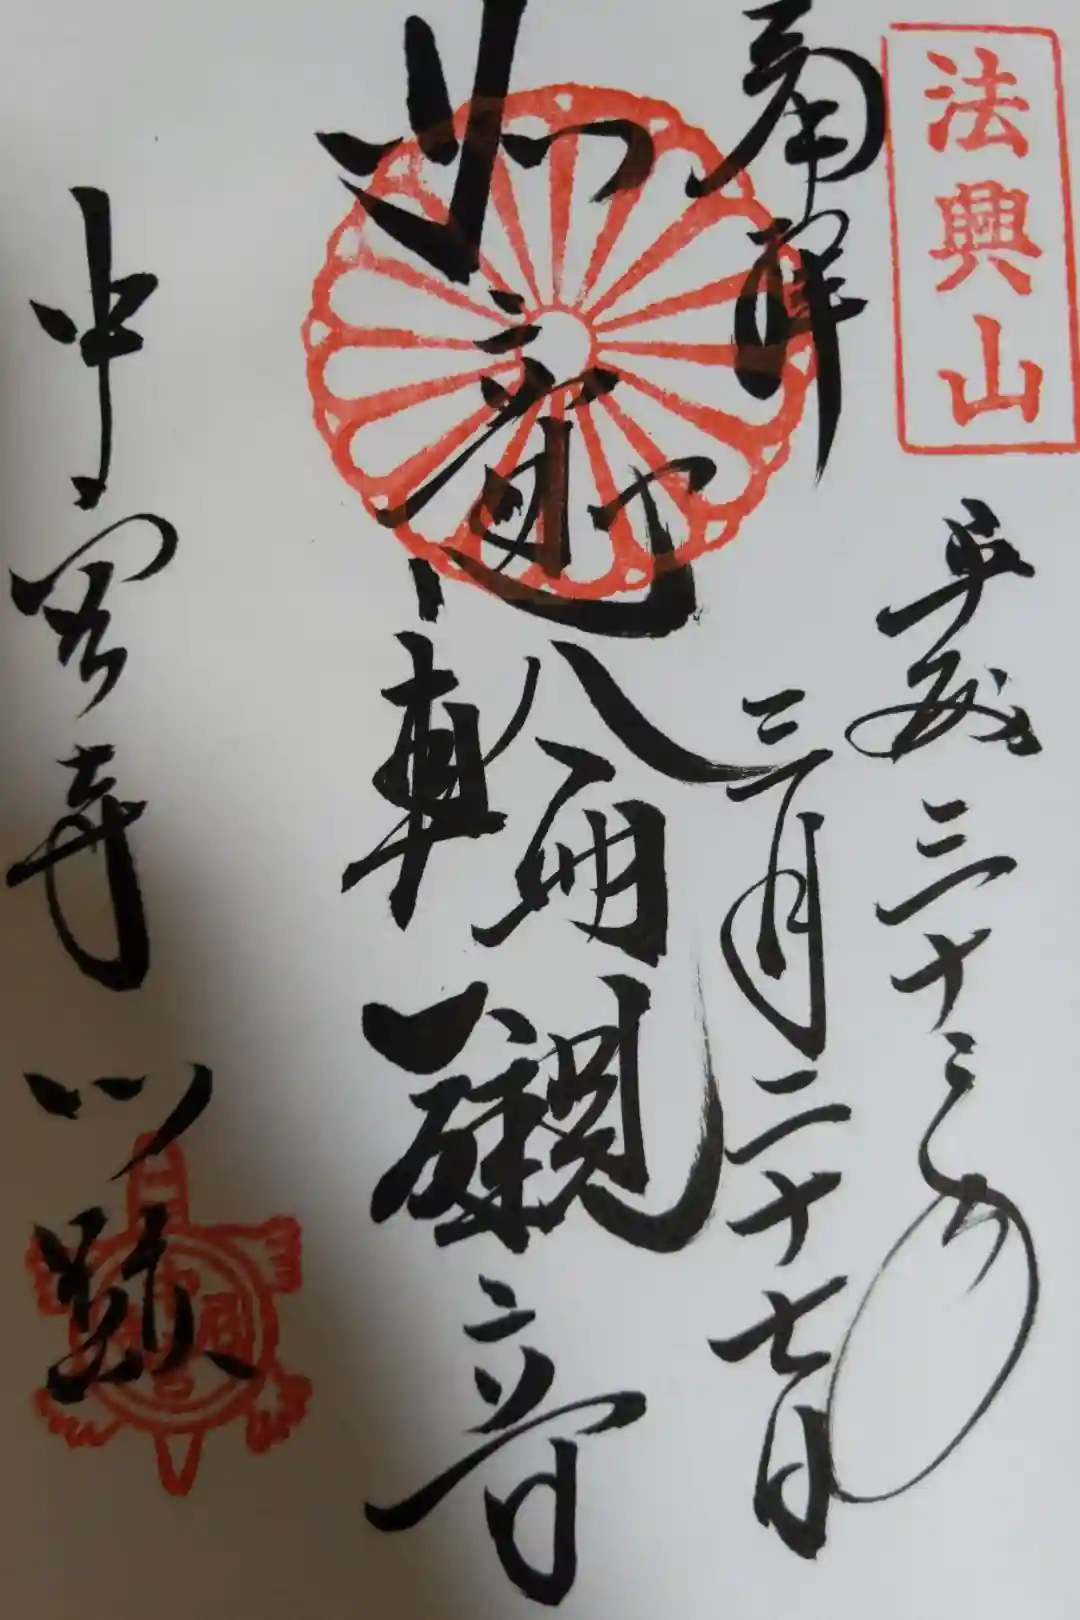 法興山
奉拝
平成三十年
三月二十七日
如意輪觀音
中宮寺門跡